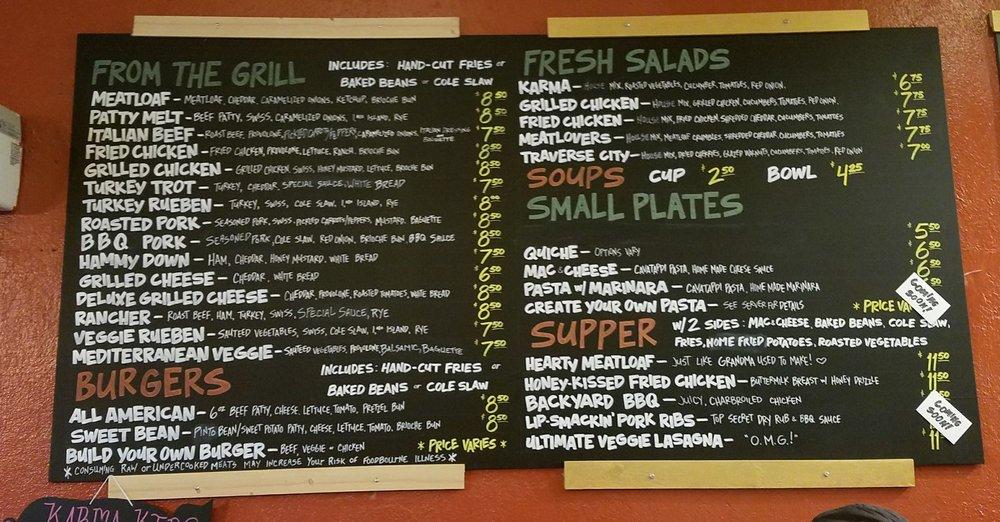 FROM THE GRILL
INCLUDES: HAND-CUT FRIES or
BAKED BEANS or COLE SLAW
MEATLOAF - MEATLOAF, CHEDDAR, CARAMELIZED ONIONS, KETCHUP, BRIOCHE BUN $8.50
PATTY MELT - BEEF PATTY, SWISS, CARAMELIZED ONIONS, 1,000 ISLAND, RYE $8.50
ITALIAN BEEF - ROAST BEEF, PROVOLONE, PICKLED CARROTS/PEPPERS, CARAMELIZED ONIONS, ITALIAN DRESSING and BAGUETTE $7.50
FRIED CHICKEN - FRIED CHICKEN, PROVOLONE, LETTUCE, RANCH, BRIOCHE BUN $8.50
GRILLED CHICKEN - GRILLED CHICKEN, SWISS, HONEY MUSTARD, LETTUCE, BRIOCHE BUN $8.50
TURKEY TROT - TURKEY, CHEDDAR, SPECIAL SAUCE, WHITE BREAD $7.50
TURKEY RUEBEN - TURKEY, SWISS, COLE SLAW, 1,000 ISLAND, RYE $8.00
ROASTED PORK - SEASONED PORK, SWISS, PICKLED CARROTS/PEPPERS, MUSTARD, BAGUETTE $8.50
BBQ PORK - SEASONED PORK, COLE SLAW, RED ONION, BRIOCHE BUN, BBQ SAUCE $8.50
HAMMY DOWN - HAM, CHEDDAR, HONEY MUSTARD, WHITE BREAD $7.50
GRILLED CHEESE - CHEDDAR, WHITE BREAD $6.50
DELUXE GRILLED CHEESE - CHEDDAR, PROVOLONE, ROASTED TOMATOES, WHITE BREAD $8.50
RANCHER - ROAST BEEF, HAM, TURKEY, SWISS, SPECIAL SAUCE, RYE $8.50
VEGGIE RUEBEN - SAUTEED VEGETABLES, SWISS, COLE SLAW, 1,000 ISLAND, RYE $7.50
MEDITERRANEAN VEGGIE - SAUTEED VEGETABLES, PROVOLONE, BALSAMIC, BAGUETTE $7.50
BURGERS
INCLUDES: HAND-CUT FRIES or
BAKED BEANS or COLE SLAW
ALL AMERICAN - 6oz BEEF PATTY, CHEESE, LETTUCE, TOMATO, PRETZEL BUN $8.50
SWEET BEAN - PINTO BEAN/SWEET POTATO PATTY, CHEESE, LETTUCE, TOMATO, BRIOCHE BUN $8.50
BUILD YOUR OWN BURGER - BEEF, VEGGIE or CHICKEN *PRICE VARIES*
*CONSUMING RAW or UNDERCOOKED MEATS MAY INCREASE YOUR RISK OF FOODBOURNE ILLNESS*
FRESH SALADS
KARMA - HOUSE MIX, ROASTED VEGETABLES, CUCUMBER, TOMATOES, RED ONION $6.75
GRILLED CHICKEN - HOUSE MIX, GRILLED CHICKEN, CUCUMBERS, TOMATOES, RED ONION $7.75
FRIED CHICKEN - HOUSE MIX, FRIED CHICKEN, SHREDDED CHEDDAR, CUCUMBERS, TOMATOES $7.75
MEATLOVERS - HOUSE MIX, MEATLOAF CRUMBLES, SHREDDED CHEDDAR, CUCUMBERS, TOMATOES $7.75
TRAVERSE CITY - HOUSE MIX, DRIED CHERRIES, GLAZED WALNUTS, CUCUMBERS, TOMATOES, RED ONION $7.00
SOUPS CUP $2.50 BOWL $4.25
SMALL PLATES
QUICHE - OPTIONS VARY $5.50
MAC & CHEESE - CAVATAPPI PASTA, HOME MADE CHEESE SAUCE $6.50
PASTA w/ MARINARA - CAVATAPPI PASTA, HOME MADE MARINARA $6.50
CREATE YOUR OWN PASTA - SEE SERVER FOR DETAILS *PRICE VA
COMING SOON!
SUPPER
w/2 SIDES: MAC & CHEESE, BAKED BEANS, COLE SLAW,
FRIES, HOME FRIED POTATOES, ROASTED VEGETABLES
HEARTY MEATLOAF - JUST LIKE GRANDMA USED TO MAKE! ♡ $11.50
HONEY-KISSED FRIED CHICKEN - BUTTERMILK BREAST w/ HONEY DRIZZLE $11.50
BACKYARD BBQ - JUICY, CHARBROILED CHICKEN
COMING SOON!
LIP-SMACKIN' PORK RIBS - TOP SECRET DRY RUB & BBQ SAUCE
ULTIMATE VEGGIE LASAGNA - "O.M.G.!" $11
KARMA KIDS